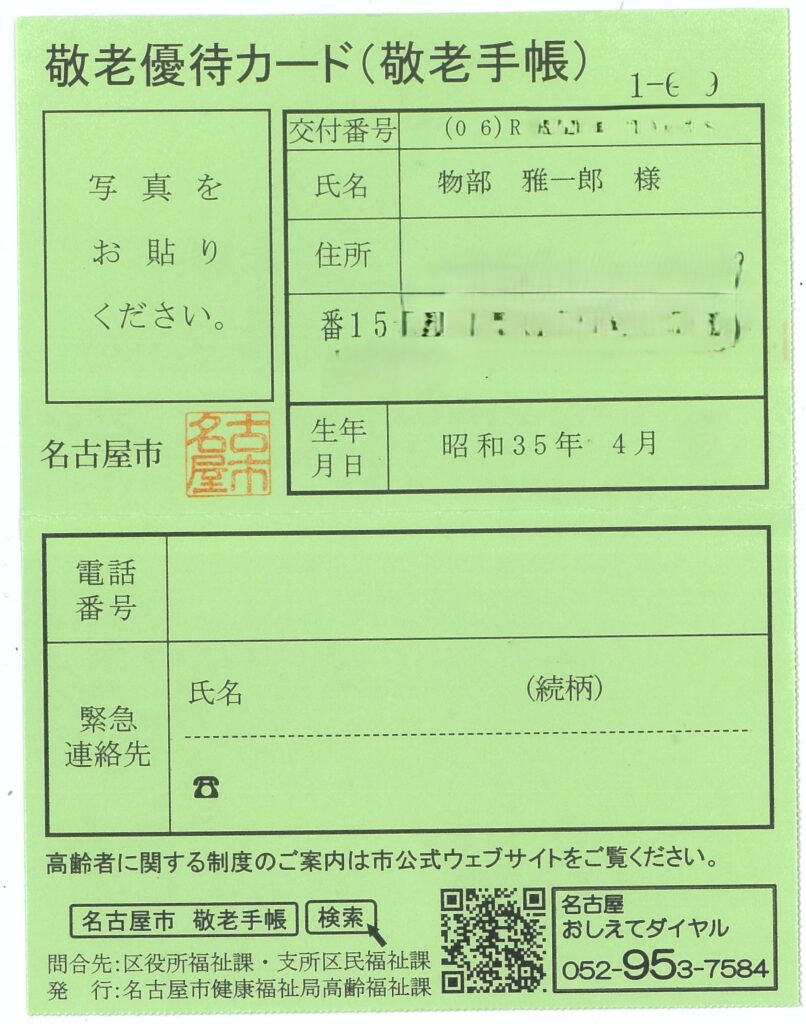 敬老優待カード(敬老手帳)
写真を
お貼り
ください。
交付番号 (06)R
氏名 物部 雅一郎 様
住所
番15
名古屋市
名古屋市
生年月日 昭和35年 4月
電話番号
緊急連絡先
氏名 (続柄)
☎
高齢者に関する制度のご案内は市公式ウェブサイトをご覧ください。
名古屋市 敬老手帳 検索
問合先:区役所福祉課・支所区民福祉課
発 行:名古屋市健康福祉局高齢福祉課
名古屋
おしえてダイヤル
052-953-7584